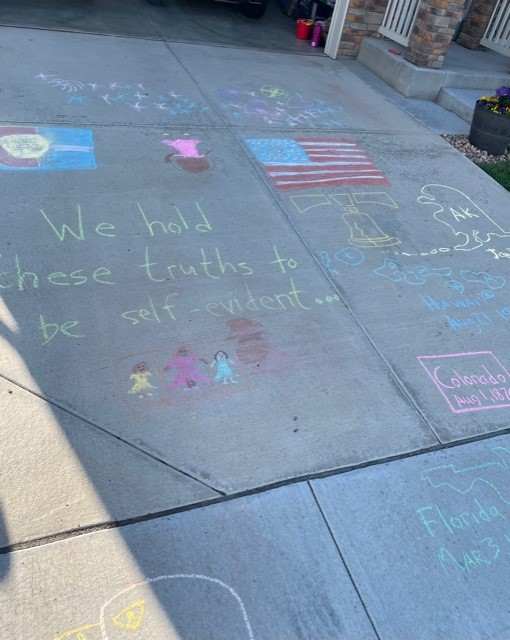 We hold
these truths to
be self-evident...
AK
Hawaii
Aug 21
Colorado
Aug 1, 187
Florida
Mar 3